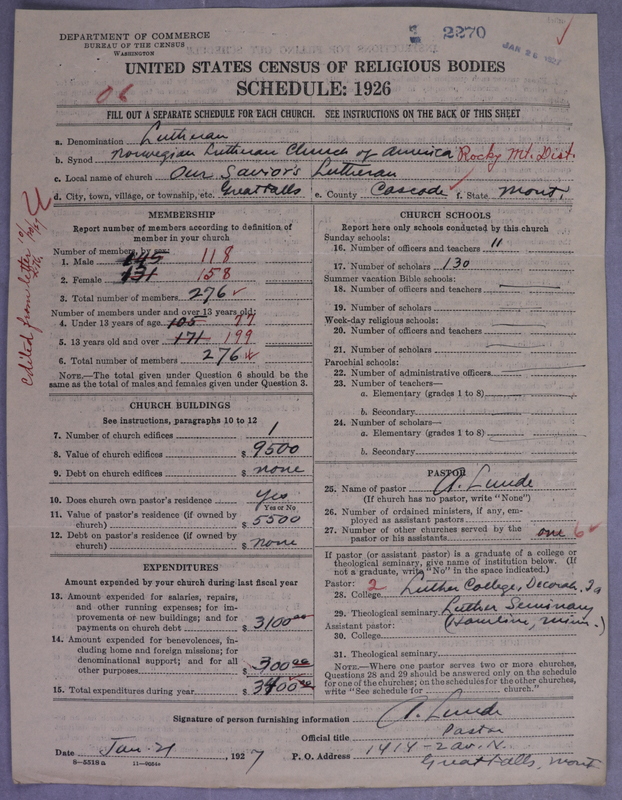 DEPARTMENT OF COMMERCE
BUREAU OF THE CENSUS
WASHINGTON
2270
JAN 26 1927
UNITED STATES CENSUS OF RELIGIOUS BODIES
SCHEDULE: 1926
06
FILL OUT A SEPARATE SCHEDULE FOR EACH CHURCH. SEE INSTRUCTIONS ON THE BACK OF THIS SHEET
a. Denomination Lutheran
b. Synod Norwegian Lutheran Church of America Rocky Mt. Dist.
c. Local name of church Our Savior's Lutheran
d. City, town, village, or township, etc. Great Falls e. County Cascade f. State Mont.
edited from letter
MEMBERSHIP
Report number of members according to definition of member in your church
Number of members by sex:
1. Male 145 118
2. Female 131 158
3. Total number of members 276
Number of members under and over 13 years old:
4. Under 13 years of age 105 77
5. 13 years old and over 171 199
6. Total number of members 276
NOTE.—The total given under Question 6 should be the same as the total of males and females given under Question 3.
CHURCH BUILDINGS
See instructions, paragraphs 10 to 12
7. Number of church edifices 1
8. Value of church edifices $ 9500
9. Debt on church edifices $ none
10. Does church own pastor's residence Yes
Yes or No
11. Value of pastor's residence (if owned by church) $ 5500
12. Debt on pastor's residence (if owned by church) $ none
EXPENDITURES
Amount expended by your church during last fiscal year
13. Amount expended for salaries, repairs, and other running expenses; for improvements or new buildings; and for payments on church debt $ 3100.00
14. Amount expended for benevolences, including home and foreign missions; for denominational support; and for all other purposes $ 300.00
15. Total expenditures during year $ 3400.00
CHURCH SCHOOLS
Report here only schools conducted by this church
Sunday schools:
16. Number of officers and teachers 11
17. Number of scholars 130
Summer vacation Bible schools:
18. Number of officers and teachers
19. Number of scholars
Week-day religious schools:
20. Number of officers and teachers
21. Number of scholars
Parochial schools:
22. Number of administrative officers
23. Number of teachers—
a. Elementary (grades 1 to 8)
b. Secondary
24. Number of scholars—
a. Elementary (grades 1 to 8)
b. Secondary
PASTOR
25. Name of pastor A. Lunde
(If church has no pastor, write "None")
26. Number of ordained ministers, if any, employed as assistant pastors
27. Number of other churches served by the pastor or his assistants one 6
If pastor (or assistant pastor) is a graduate of a college or theological seminary, give name of institution below. (If not a graduate, write "No" in the space indicated.)
Pastor: 2
28. College Luther College, Decorah, Ia
29. Theological seminary Luther Seminary
Assistant pastor: (Hamline, Minn.)
30. College
31. Theological seminary
NOTE.—Where one pastor serves two or more churches, Questions 28 and 29 should be answered only on the schedule for one of the churches; on the schedules for the other churches, write "See schedule for church."
Signature of person furnishing information A. Lunde
Official title Pastor
Date Jan. 21, 1927 P. O. Address 1414-2 av. N.
Great Falls, Mont
8-5518a 11-9684